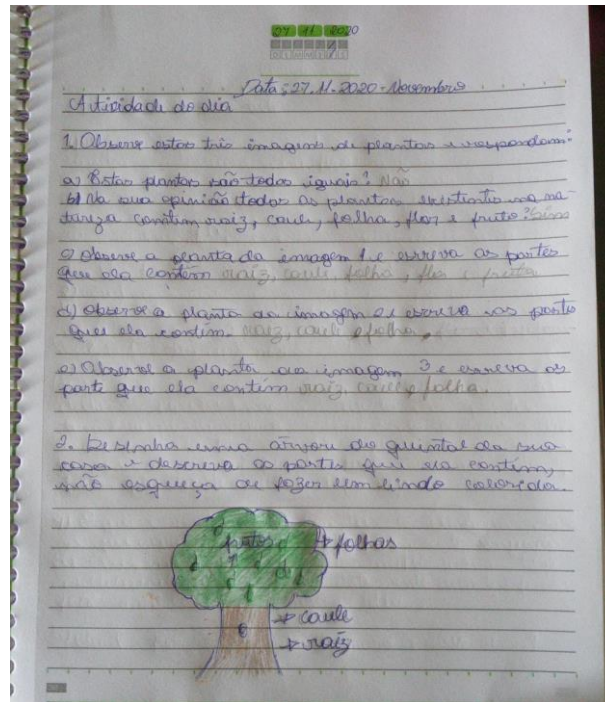 27 11 2020
D S T Q Q S S
Data: 27.11.2020 - Novembro
Atividade do dia
1. Observe estas três imagens de plantas e respondam:
a) Estas plantas são todas iguais? Não
b) Na sua opinião todas as plantas existentes na na-
tureza contém raiz, caule, folha, flor e fruto? Sim
c) observe a planta da imagem 1 e escreva as partes
que ela contém raiz, caule, folha, flor e fruta
d) observe a planta da imagem 2 e escreva as partes
que ela contém. raiz, caule e folha.
e) Observe a planta da imagem 3 e escreva as
parte que ela contém raiz, caule, folha.
2. Desenha uma árvore do quintal da sua
casa e descreva as partes que ela contém,
não esqueça de fazer um lindo colorido.
frutos folhas
caule
raiz